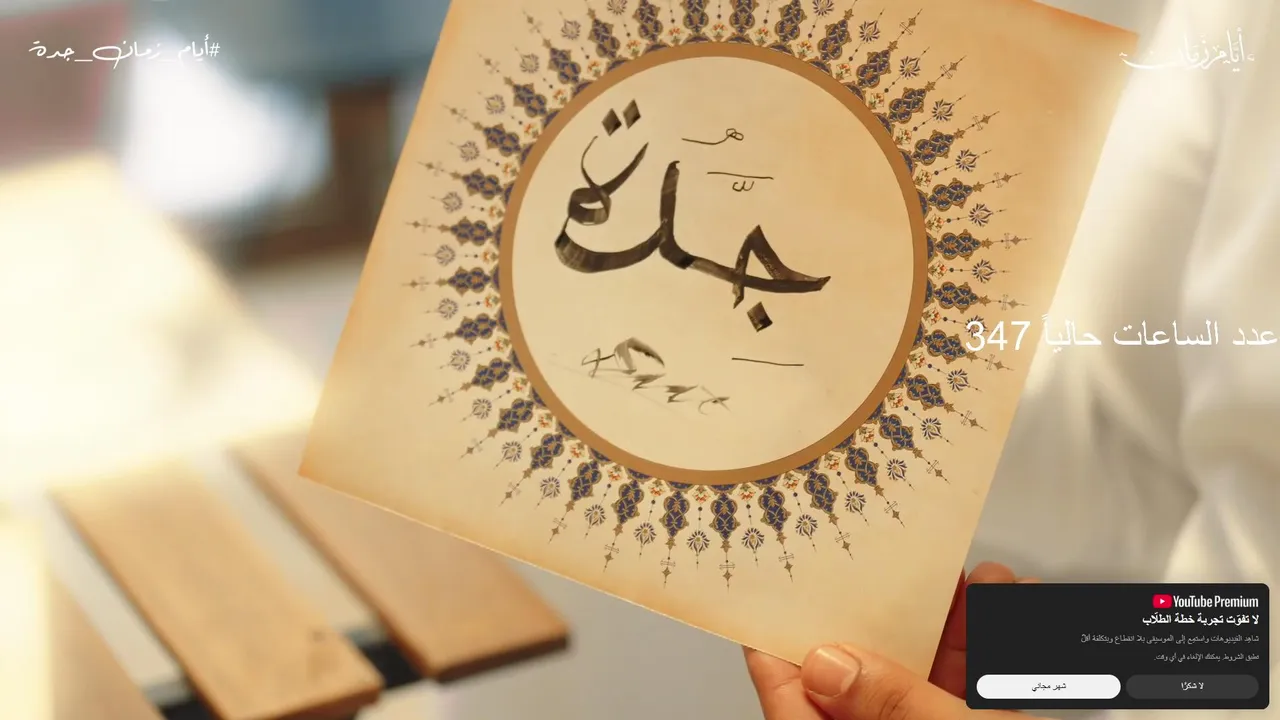 #أيام_زمان_جدة
أيام زمان
جدة
عدد الساعات حالياً 347
YouTube Premium
لا تفوّت تجربة خطة الطلّاب
شاهِد الفيديوهات واستمِع إلى الموسيقى بلا انقطاع وبتكلفة أقلّ
تطبق الشروط. يمكنك الإلغاء في أي وقت.
لا شكرًا
شهر مجاني